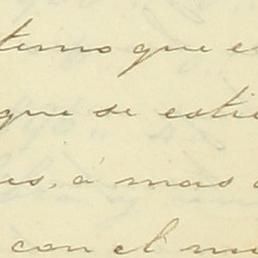 temo que e
que se esti
es, á mas
con el mu